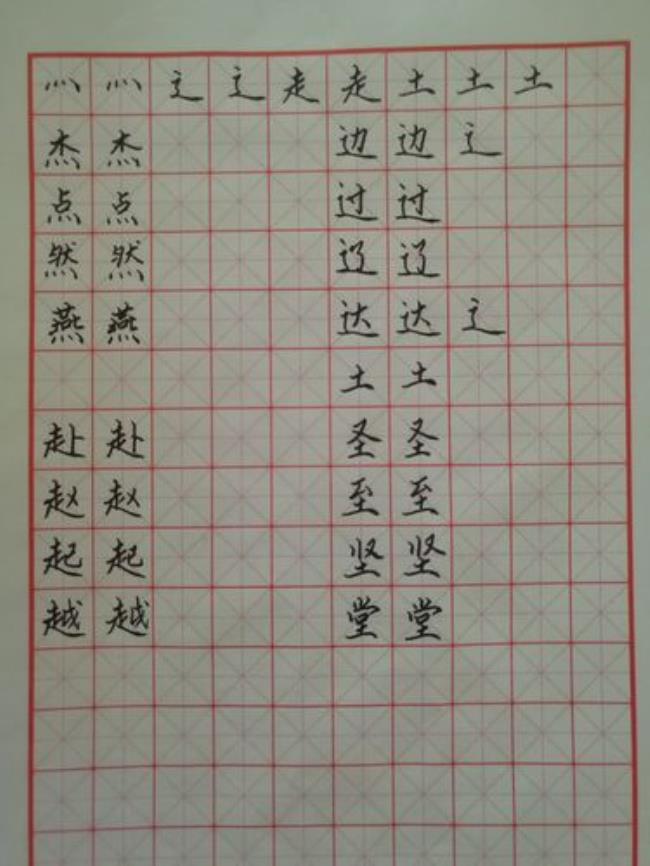 灬 灬 辶 辶 走 走 土 土 土
杰 杰 边 边 辶
点 点 过 过
然 然 辽 辽
燕 燕 达 达 辶
土 土
赴 赴 圣 圣
赵 赵 至 至
起 起 坚 坚
越 越 堂 堂